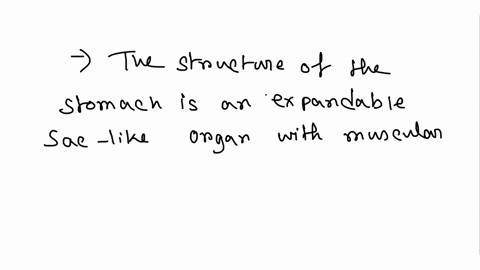 → The structure of the
stomach is an expandable
Sac-like organ with muscular